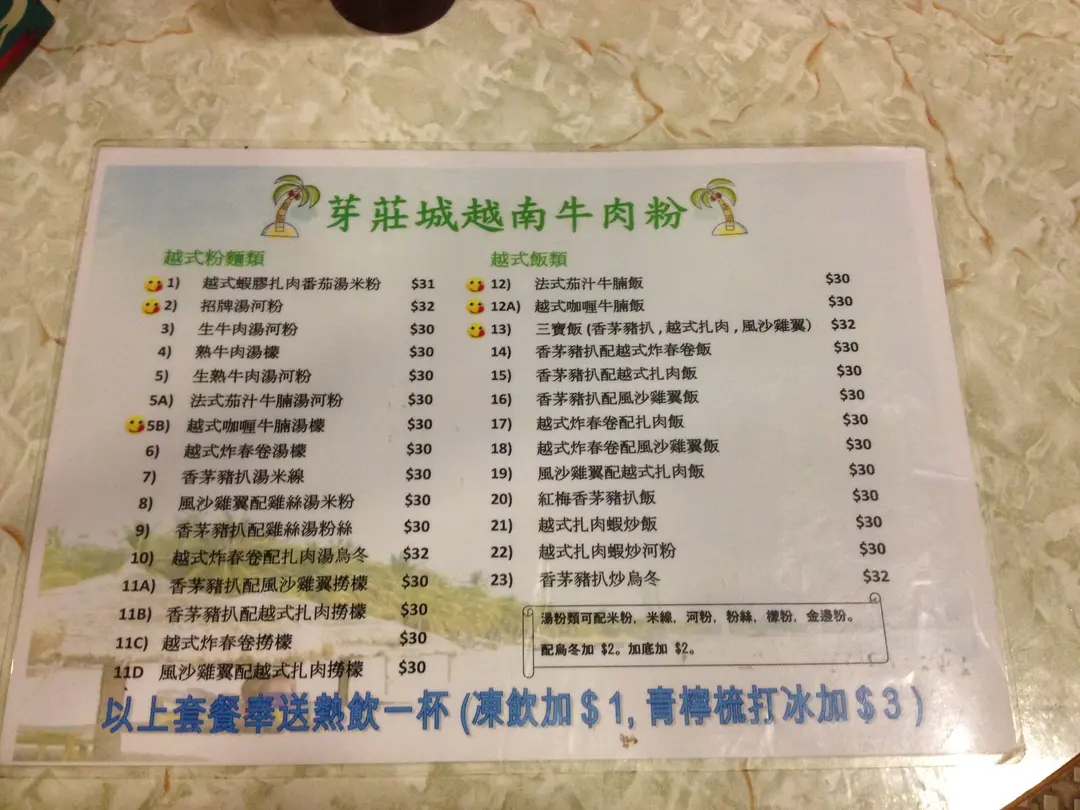 芽莊城越南牛肉粉
越式粉麵類
1) 越式蝦膠扎肉番茄湯米粉 $31
2) 招牌湯河粉 $32
3) 生牛肉湯河粉 $30
4) 熟牛肉湯檬 $30
5) 生熟牛肉湯河粉 $30
5A) 法式茄汁牛腩湯河粉 $30
5B) 越式咖喱牛腩湯檬 $30
6) 越式炸春卷湯檬 $30
7) 香茅豬扒湯米線 $30
8) 風沙雞翼配雞絲湯米粉 $30
9) 香茅豬扒配雞絲湯粉絲 $30
10) 越式炸春卷配扎肉湯烏冬 $32
11A) 香茅豬扒配風沙雞翼撈檬 $30
11B) 香茅豬扒配越式扎肉撈檬 $30
11C) 越式炸春卷撈檬 $30
11D 風沙雞翼配越式扎肉撈檬 $30
越式飯類
12) 法式茄汁牛腩飯 $30
12A) 越式咖喱牛腩飯 $30
13) 三寶飯 (香茅豬扒 , 越式扎肉 , 風沙雞翼) $32
14) 香茅豬扒配越式炸春卷飯 $30
15) 香茅豬扒配越式扎肉飯 $30
16) 香茅豬扒配風沙雞翼飯 $30
17) 越式炸春卷配扎肉飯 $30
18) 越式炸春卷配風沙雞翼飯 $30
19) 風沙雞翼配越式扎肉飯 $30
20) 紅梅香茅豬扒飯 $30
21) 越式扎肉蝦炒飯 $30
22) 越式扎肉蝦炒河粉 $30
23) 香茅豬扒炒烏冬 $32
湯粉類可配米粉, 米線, 河粉, 粉絲, 檬粉, 金邊粉。
配烏冬加 $2。加底加 $2。
以上套餐奉送熱飲一杯 (凍飲加 $ 1, 青檸梳打冰加 $ 3 )